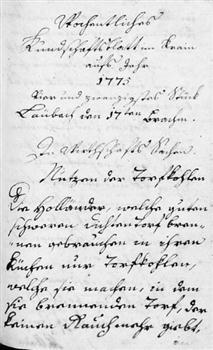 Wochentliches
Kundschaftsblatt im Krain
aufs Jahr
1775
Vier und zwanzigstes Stück
Laubach den 17ten Brachm.
In Wirthschafts Sachen.
Nutzen der Torfkohlen
Die Holländer, welche guten
schweren dichten Torf bren-
nen gebrauchen in ihren
Küchen nur Torfkohlen,
welche sie machen, in dem
sie brennenden Torf, der
keinen Rauch mehr giebt,